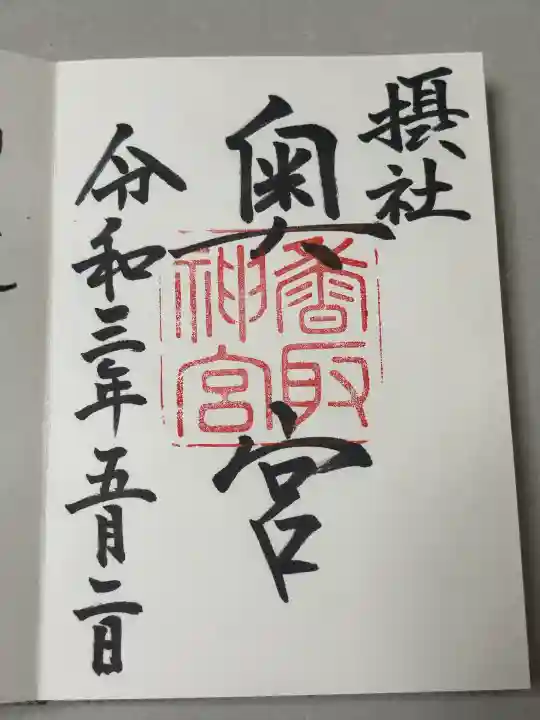 摂社
奥宮
香取
神宮
令和三年五月二日